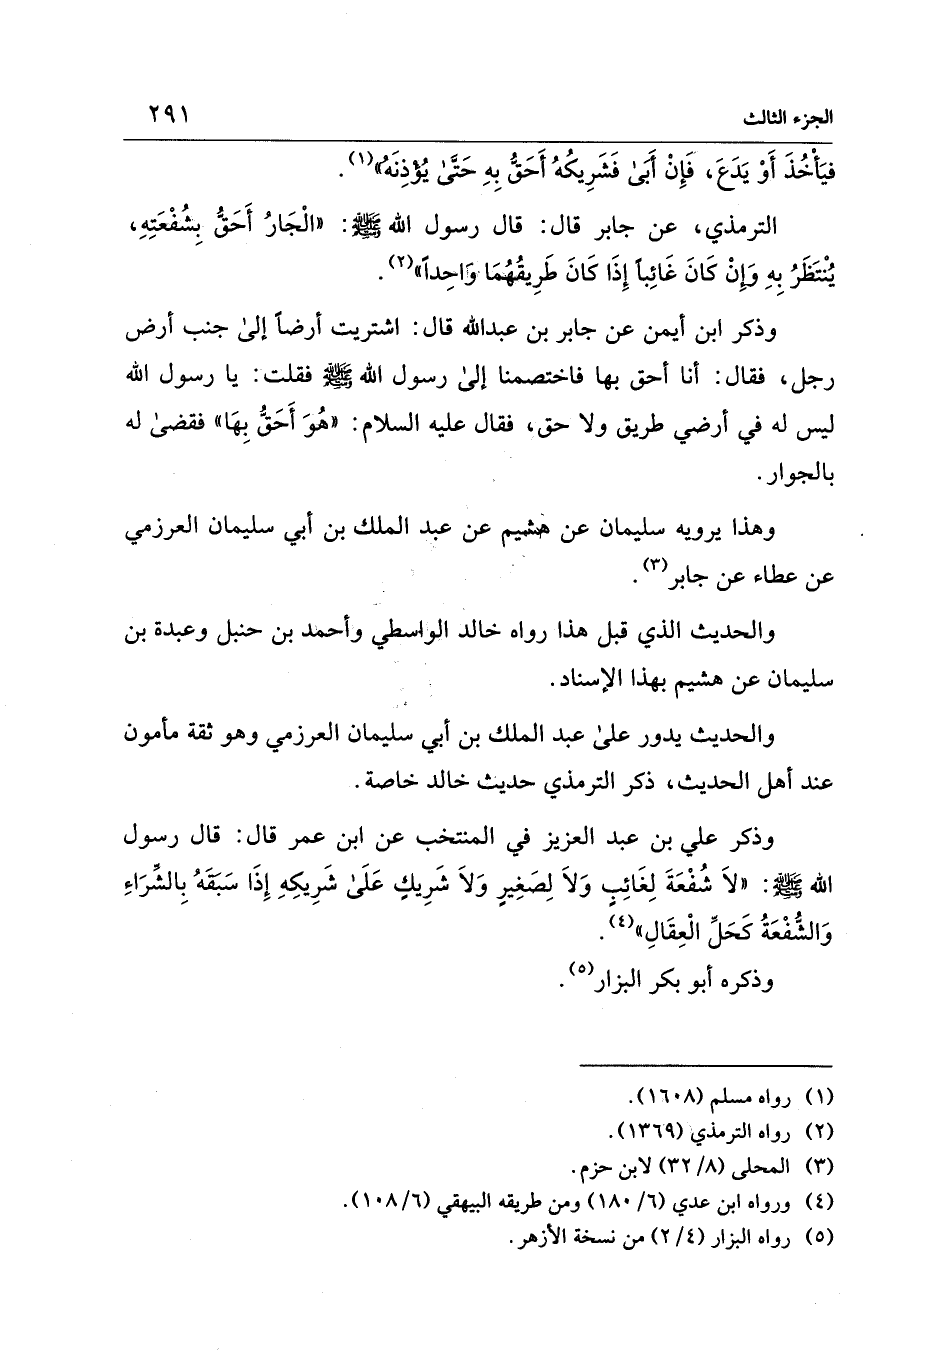 الجزء الثالث ٢٩١
فيَأْخُذَ أَوْ يَدَعَ، فَإِنْ أَبَىٰ فَشَرِيكُهُ أَحَقُّ بِهِ حَتَّىٰ يُؤْذِنَهُ»(١).
الترمذي، عن جابر قال: قال رسول الله ﷺ: «الْجَارُ أَحَقُّ بِشُفْعَتِهِ،
يُنْتَظَرُ بِهِ وَإِنْ كَانَ غَائِباً إِذَا كَانَ طَرِيقُهُمَا وَاحِداً»(٢).
وذكر ابن أيمن عن جابر بن عبدالله قال: اشتريت أرضاً إلىٰ جنب أرض
رجل، فقال: أنا أحق بها فاختصمنا إلىٰ رسول الله ﷺ فقلت: يا رسول الله
ليس له في أرضي طريق ولا حق، فقال عليه السلام: «هُوَ أَحَقُّ بِهَا» فقضىٰ له
بالجوار.
وهذا يرويه سليمان عن هشيم عن عبد الملك بن أبي سليمان العرزمي
عن عطاء عن جابر(٣).
والحديث الذي قبل هذا رواه خالد الواسطي وأحمد بن حنبل وعبدة بن
سليمان عن هشيم بهذا الإسناد.
والحديث يدور علىٰ عبد الملك بن أبي سليمان العرزمي وهو ثقة مأمون
عند أهل الحديث، ذكر الترمذي حديث خالد خاصة.
وذكر علي بن عبد العزيز في المنتخب عن ابن عمر قال: قال رسول
الله ﷺ: «لاَ شُفْعَةَ لِغَائِبٍ وَلاَ لِصَغِيرٍ وَلاَ شَرِيكٍ عَلَىٰ شَرِيكِهِ إِذَا سَبَقَهُ بِالشِّرَاءِ
وَالشُّفْعَةُ كَحَلِّ الْعِقَالِ»(٤).
وذكره أبو بكر البزار(٥).
(١) رواه مسلم (١٦٠٨).
(٢) رواه الترمذي (١٣٦٩).
(٣) المحلى (٨/ ٣٢) لابن حزم.
(٤) ورواه ابن عدي (٦/ ١٨٠) ومن طريقه البيهقي (٦/ ١٠٨).
(٥) رواه البزار (٤/ ٢) من نسخة الأزهر.